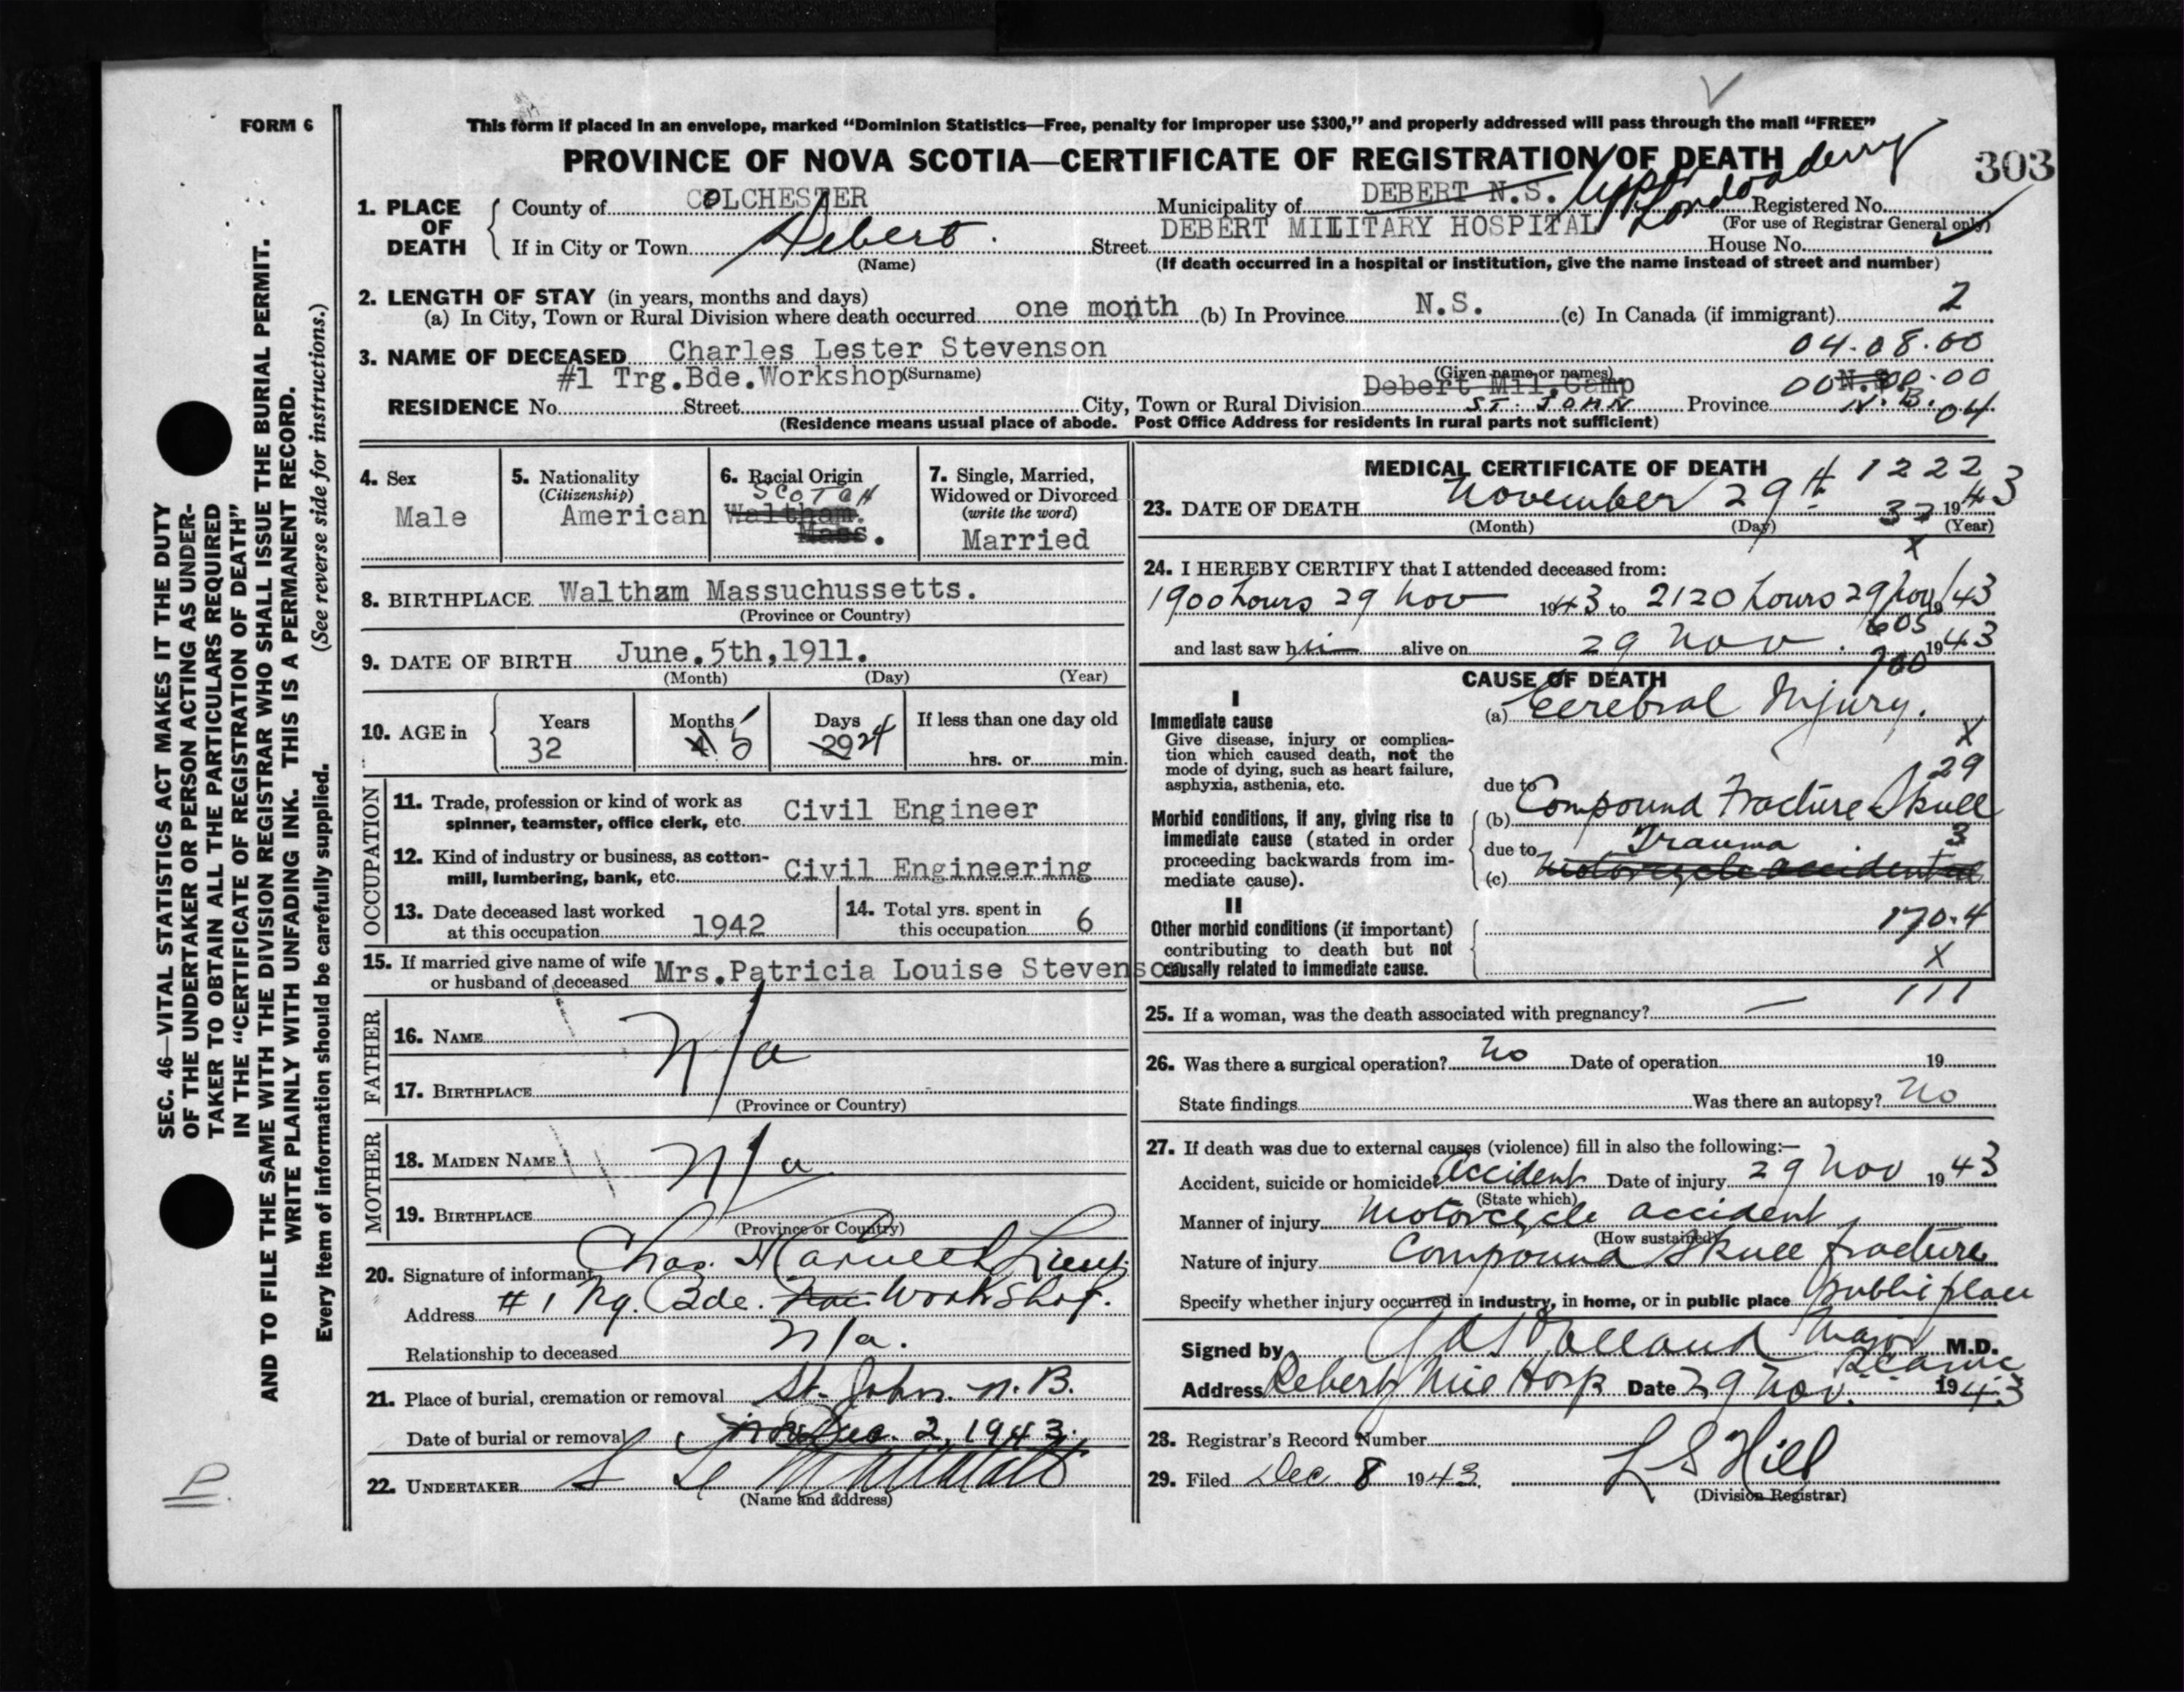 FORM 6
This form if placed in an envelope, marked “Dominion Statistics—Free, penalty for improper use $300,” and properly addressed will pass through the mail “FREE”
PROVINCE OF NOVA SCOTIA—CERTIFICATE OF REGISTRATION OF DEATH
303
1. PLACE OF DEATH
County of COLCHESTER Municipality of DEBERT N.S. Upper Londonderry Registered No.
(For use of Registrar General only)
If in City or Town Debert. Street DEBERT MILITARY HOSPITAL House No.
(Name) (If death occurred in a hospital or institution, give the name instead of street and number)
2. LENGTH OF STAY (in years, months and days)
(a) In City, Town or Rural Division where death occurred one month (b) In Province N.S. (c) In Canada (if immigrant) 2
3. NAME OF DECEASED Charles Lester Stevenson 04.08.00
(Surname) (Given name or names)
#1 Trg.Bde.Workshop Debert Mil.Camp N.S. 00.00
RESIDENCE No. Street City, Town or Rural Division ST. JOHN Province N.B. 04
(Residence means usual place of abode. Post Office Address for residents in rural parts not sufficient)
4. Sex
Male
5. Nationality
(Citizenship)
American
6. Racial Origin
SCOTCH
Waltham.
Mass.
7. Single, Married,
Widowed or Divorced
(write the word)
Married
8. BIRTHPLACE Waltham Massuchussetts.
(Province or Country)
9. DATE OF BIRTH June.5th,1911.
(Month) (Day) (Year)
10. AGE in
Years Months Days If less than one day old
32 4 5 29 24
hrs. or min.
OCCUPATION
11. Trade, profession or kind of work as
spinner, teamster, office clerk, etc. Civil Engineer
12. Kind of industry or business, as cotton-
mill, lumbering, bank, etc. Civil Engineering
13. Date deceased last worked
at this occupation 1942
14. Total yrs. spent in
this occupation 6
15. If married give name of wife
or husband of deceased Mrs.Patricia Louise Stevenson
FATHER
16. NAME
n/a
17. BIRTHPLACE
(Province or Country)
MOTHER
18. MAIDEN NAME n/a
19. BIRTHPLACE
(Province or Country)
20. Signature of informant Chas. Lieut.
Address #1 Bde. Workshop.
Relationship to deceased n/a.
21. Place of burial, cremation or removal St. John. N.B.
Date of burial or removal Dec. 2, 1943.
22. UNDERTAKER
(Name and address)
MEDICAL CERTIFICATE OF DEATH
1222
23. DATE OF DEATH November 29th 1943
(Month) (Day) (Year)
X
24. I HEREBY CERTIFY that I attended deceased from:
1900 hours 29 Nov 1943 to 2120 hours 29 Nov 1943
605
and last saw h alive on 29 Nov. 1943
700
CAUSE OF DEATH
I
Immediate cause
Give disease, injury or complica-
tion which caused death, not the
mode of dying, such as heart failure,
asphyxia, asthenia, etc.
(a) Cerebral Injury.
X
29
due to
Morbid conditions, if any, giving rise to
immediate cause (stated in order
proceeding backwards from im-
mediate cause).
(b) Compound Fracture Skull
due to Trauma 3
(c) Motorcycle accident
II
Other morbid conditions (if important)
contributing to death but not
causally related to immediate cause.
170.4
X
111
25. If a woman, was the death associated with pregnancy? —
26. Was there a surgical operation? No Date of operation 19
State findings Was there an autopsy? No
27. If death was due to external causes (violence) fill in also the following:—
Accident, suicide or homicide? Accident Date of injury 29 Nov 1943
(State which)
Manner of injury Motorcycle accident
(How sustained)
Nature of injury Compound Skull fracture
Specify whether injury occurred in industry, in home, or in public place public place
Signed by Major M.D.
Address Debert Mil Hosp Date 29 Nov. 1943
28. Registrar's Record Number
29. Filed Dec 8 1943. L S Hill
(Division Registrar)
SEC. 46—VITAL STATISTICS ACT MAKES IT THE DUTY
OF THE UNDERTAKER OR PERSON ACTING AS UNDER-
TAKER TO OBTAIN ALL THE PARTICULARS REQUIRED
IN THE “CERTIFICATE OF REGISTRATION OF DEATH”
AND TO FILE THE SAME WITH THE DIVISION REGISTRAR WHO SHALL ISSUE THE BURIAL PERMIT.
WRITE PLAINLY WITH UNFADING INK. THIS IS A PERMANENT RECORD.
Every item of information should be carefully supplied. (See reverse side for instructions.)
P.